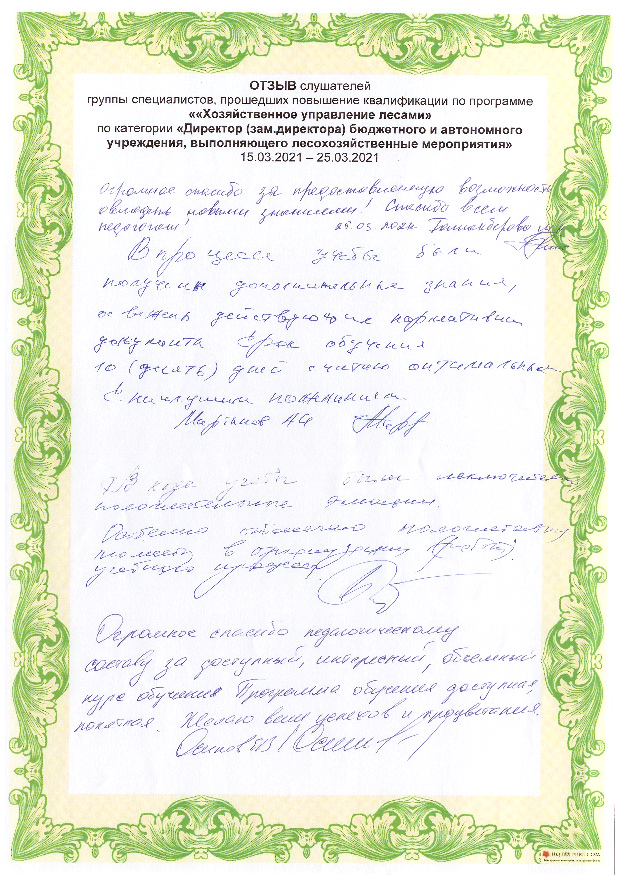 ОТЗЫВ слушателей
группы специалистов, прошедших повышение квалификации по программе
««Хозяйственное управление лесами»
по категории «Директор (зам.директора) бюджетного и автономного
учреждения, выполняющего лесохозяйственные мероприятия»
15.03.2021 – 25.03.2021
Огромное спасибо за предоставленную возможность
овладеть новыми знаниями! Спасибо всем
педагогам!
В процессе учебы были
получены дополнительные знания,
освежены действующие нормативные
документы Срок обучения
10 (десять) дней считаю оптимальным.
С наилучшими пожеланиями.
Мартынов
В ходе учебы были исключительно
положительные эмоции.
Особенно
в организации (работы)
учебного процесса
Огромное спасибо педагогическому
составу за доступный, интересный, объемный
курс обучения Программа обучения доступная,
понятная. Желаю вам успехов и процветания.